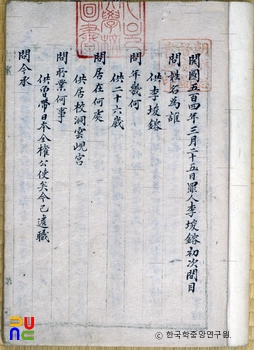 開國五百四年三月二十五日罪人李埈鎔初次問目
問姓名爲誰
供李埈鎔
問年幾何
供二十六歲
問居在何處
供居校洞雲峴宮
問所業何事
供曾帶日本全權公使矣今已遞職
問今承
PUNC
© 한국학중앙연구원